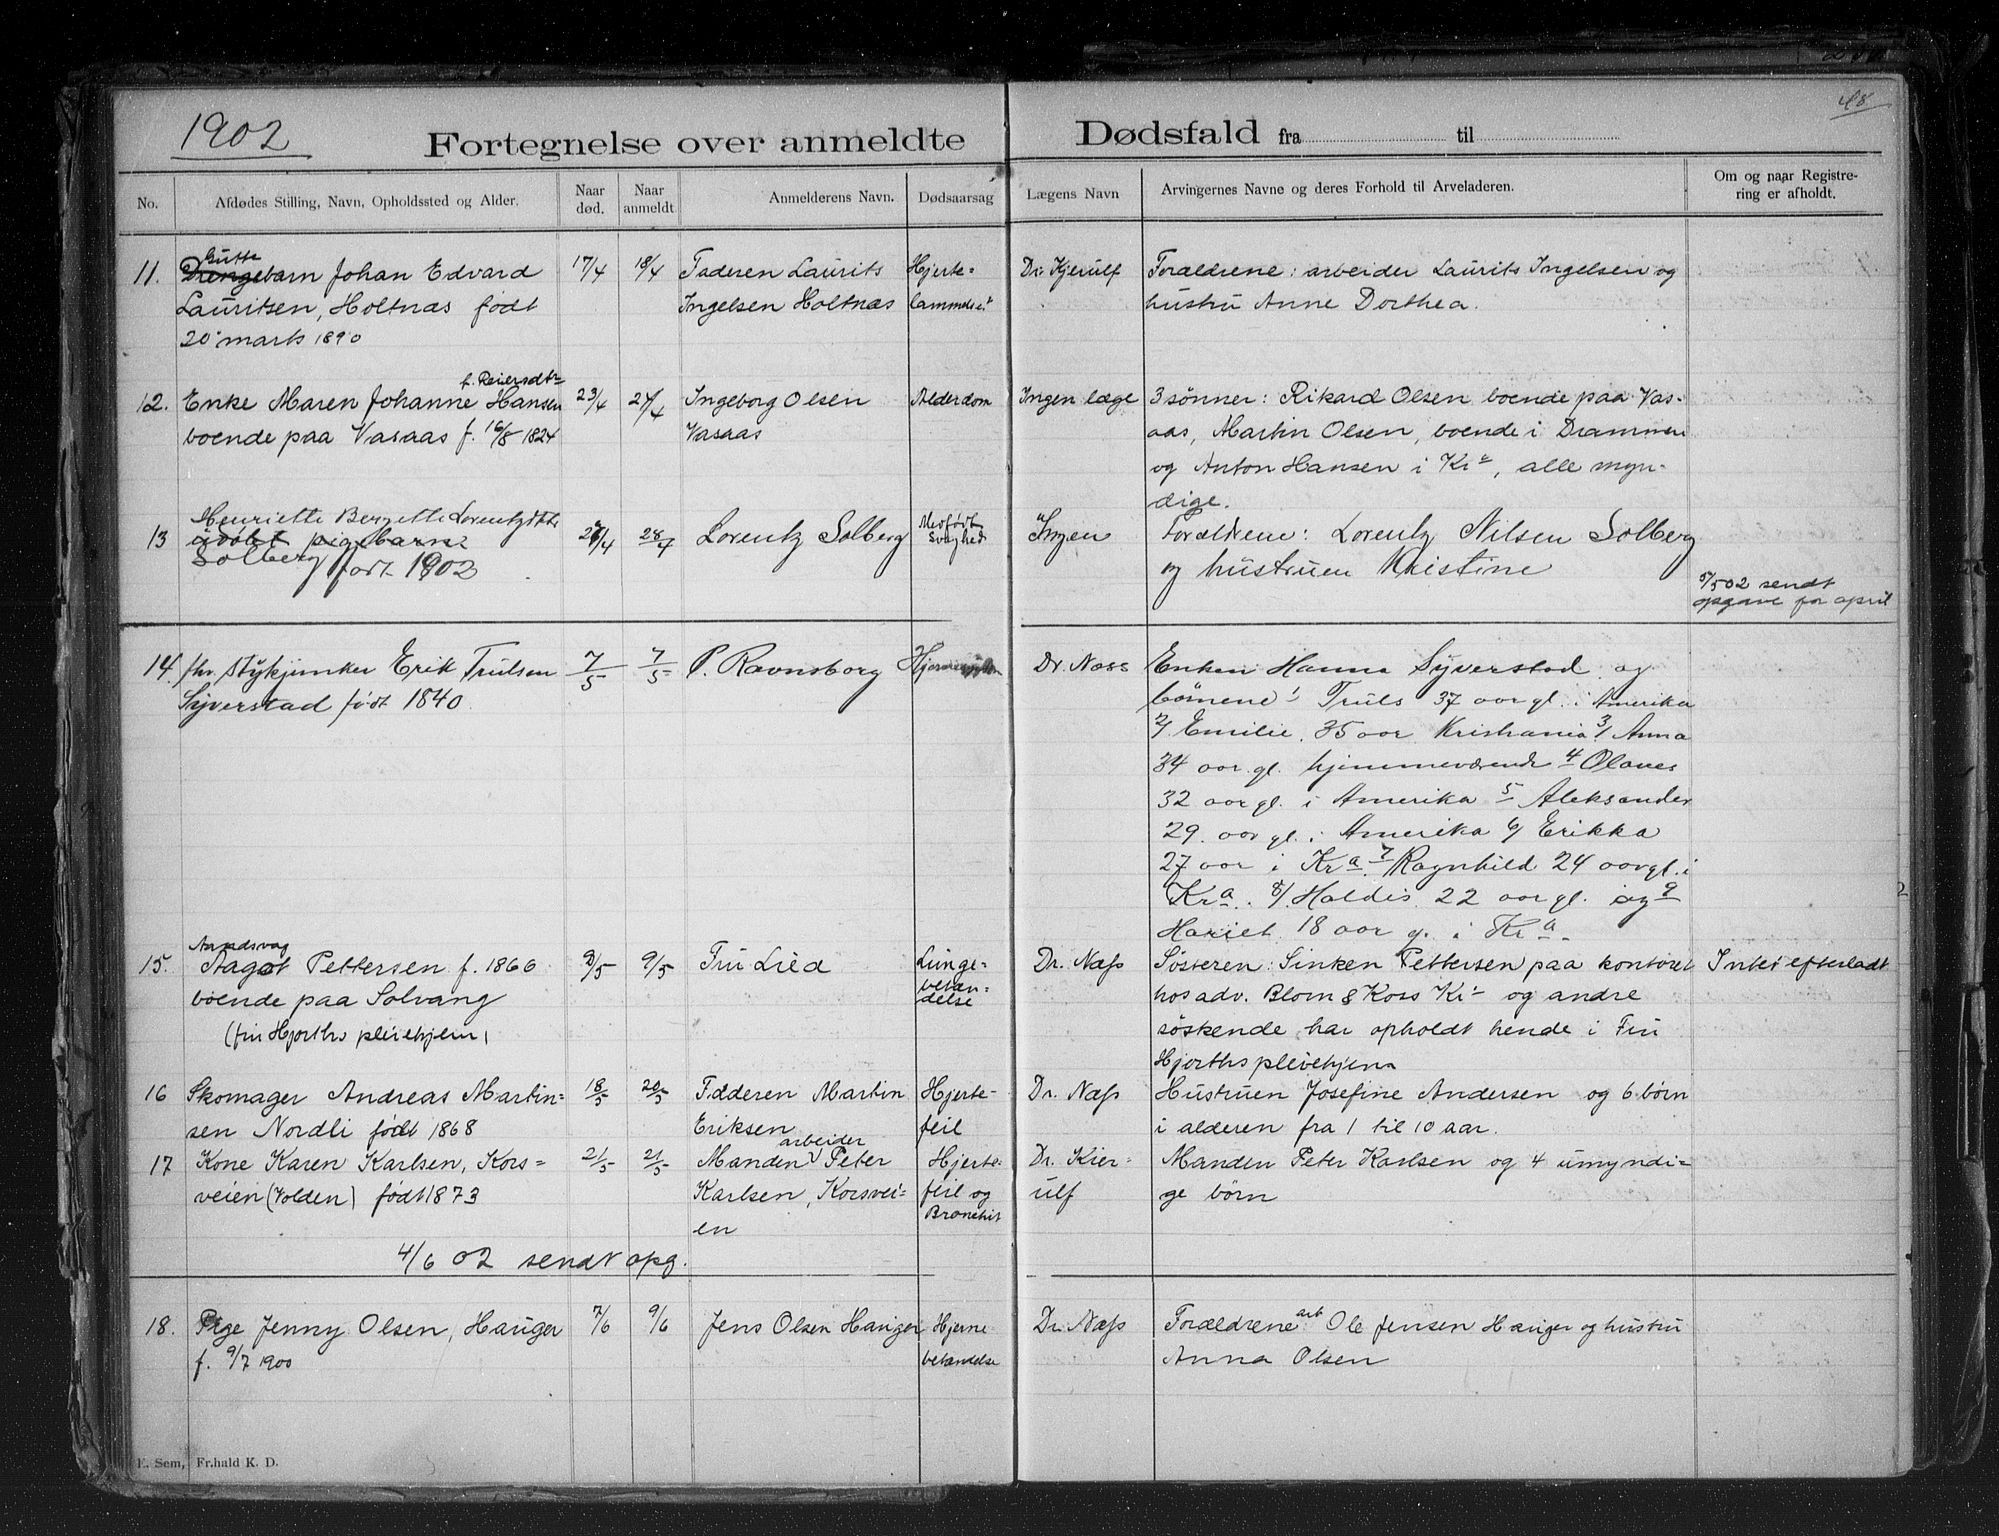 48
1902
Fortegnelse over anmeldte Dødsfald fra til
No.
Afdødes Stilling, Navn, Opholdssted og Alder.
Naar død.
Naar anmeldt.
Anmelderens Navn.
Dødsaarsag
Lægens Navn
Arvingernes Navne og deres Forhold til Arveladeren.
Om og naar Registrering er afholdt.
11.
Gutte
Drengebarn Johan Edvard
Lauritsen, Holtnæs født
20 marts 1890
17/4
18/4
Faderen Laurits
Ingelsen Holtnæs
Hjerte=
lammelse
Dr. Kjerulf
Forældrene: arbeider Laurits Ingelsen og
hustru Anne Dorthea.
12.
f. Reiersdtr
Enke Maren Johanne Hansen
boende paa Vasaas f. 16/8 1824
23/4
24/4
Ingeborg Olsen
Vasaas
Alderdom
Ingen læge
3 sønner: Rikard Olsen boende paa Vas-
aas, Martin Olsen, boende i Drammen
og Anton Hansen i Kra, alle myn-
dige.
13
Henriette Bergette Lorentzdtr
udøbt pigebarn
Solberg født 1902
28/4
Lorentz Solberg
Medfødt
Svaghed
Ingen
Forældrene: Lorentz Nilsen Solberg
og hustruen Kristine
5/5 02 sendt
opgave for april
14.
fhv. Stykjunker Erik Trulsen
Syverstad født 1840.
7/5
7/5
P. Ravnsborg
Dr. Næss
Enken Hanna Syverstad og
børnene 1 Truls 37 aar gl. i Amerika
2/ Emilie 35 aar Kristiania 3/ Anna
34 aar gl. hjemmeværende 4 Olaves
32 aar gl. i Amerika 5 Aleksander
29 aar gl. i Amerika 6/ Erikka
27 aar i Kra. 7 Ragnhild 24 aar gl. i
Kra. 8/ Haldis 22 aar gl. og 9
Hariet 18 aar g. i Kra.
15.
Aagot Pettersen f. 1866
boende paa Solvang
(fru Hjorths pleiehjem)
9/5
9/5
Fru Lied
Lunge=
betæn-
delse
Dr. Næss
Søsteren: Sinken Pettersen paa kontoret
hos adv. Blom & Koss Kr. og andre
søskende har opholdt hende i Fru
Hjorths pleiehjem
Intet efterladt
16
Skomager Andreas Martin=
sen Nordli født 1868
18/5
20/5
Fdderen Martin
Eriksen
Hjerte-
feil
Dr. Næss
Hustruen Josefine Andersen og 6 børn
i alderen fra 1 til 10 aar.
17
Kone Karen Karlsen, Kors=
veien (Volden) født 1873
21/5
21/5
arbeider
Manden Peter
Karlsen, Korsvei-
en
Hjerte-
feil og
Bronchit
Dr. Kier-
ulf
Manden Peter Karlsen og 4 umyndi-
ge børn
4/6 02 sendt opg.
18.
Pige Jenny Olsen, Hauger
f. 9/7 1900
7/6
9/6
Jens Olsen Hauger
Hjerne
betændelse
Dr. Næss
Forældrene arb Ole Jensen Hauger og hustru
Anna Olsen
E. Sem, Fr.hald K. D.